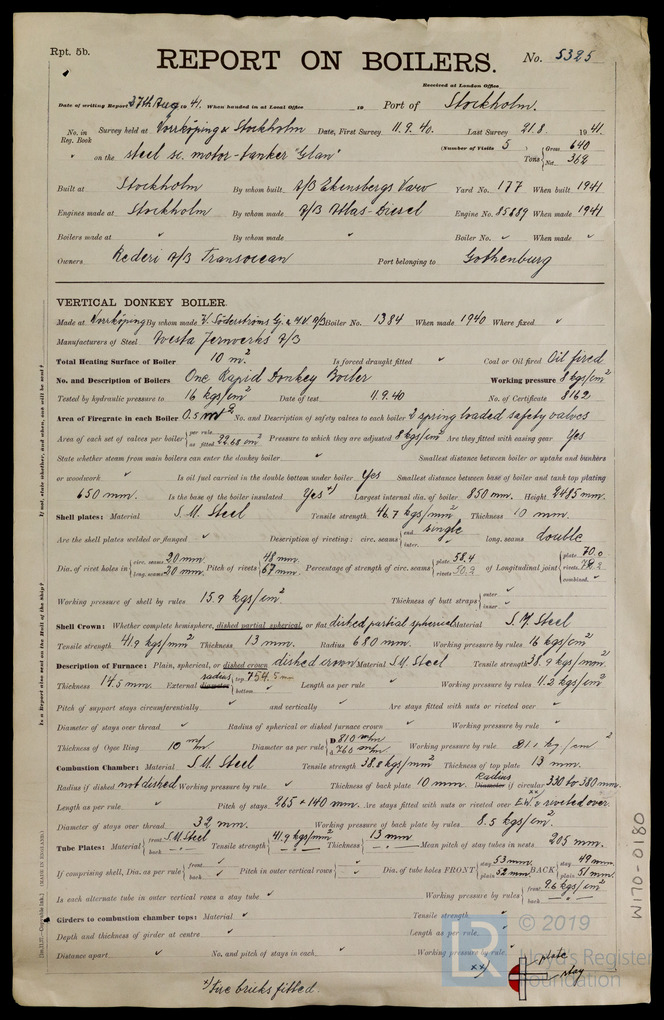 Rpt. 5b.
REPORT ON BOILERS.
No. 5325
Received at London Office
Date of writing Report 27th Aug 1941. When handed in at Local Office 19 Port of Stockholm.
No. in Reg. Book Survey held at Norrköping & Stockholm Date, First Survey 11.9.40. Last Survey 21.8. 1941.
(Number of Visits 5)
on the steel sc. motor-tanker "Glan" Tons { Gross 640 Net 362
Built at Stockholm By whom built A/B Ekensbergs Varv Yard No. 177 When built 1941
Engines made at Stockholm By whom made A/B Atlas-Diesel Engine No. 85689 When made 1941
Boilers made at ✓ By whom made ✓ Boiler No. ✓ When made ✓
Owners Rederi A/B Transocean Port belonging to Gothenburg
VERTICAL DONKEY BOILER.
Made at Norrköping By whom made V. Söderströms Gj. & M.V. A/B Boiler No. 1384 When made 1940 Where fixed ✓
Manufacturers of Steel Jernverks A/B
Total Heating Surface of Boiler 10 m² Is forced draught fitted ✓ Coal or Oil fired Oil fired
No. and Description of Boilers One Rapid Donkey Boiler Working pressure 8 kgs/cm²
Tested by hydraulic pressure to 16 kgs/cm² Date of test 11.9.40 No. of Certificate 8162
Area of Firegrate in each Boiler 0.5 m² No. and Description of safety valves to each boiler 2 spring loaded safety valves
Area of each set of valves per boiler { per rule as fitted 22.68 cm² Pressure to which they are adjusted 8 kgs/cm² Are they fitted with easing gear Yes
State whether steam from main boilers can enter the donkey boiler ✓ Smallest distance between boiler or uptake and bunkers
or woodwork ✓ Is oil fuel carried in the double bottom under boiler Yes Smallest distance between base of boiler and tank top plating
650 mm. Is the base of the boiler insulated Yes +) Largest internal dia. of boiler 850 mm. Height 2485 mm.
Shell plates: Material S.M. Steel Tensile strength 46.7 kgs/mm² Thickness 10 mm.
Are the shell plates welded or flanged ✓ Description of riveting: circ. seams { end single inter. long. seams double
Dia. of rivet holes in { circ. seams 20 mm long. seams 20 mm Pitch of rivets { 48 mm 67 mm Percentage of strength of circ. seams { plate 58.4 rivets 50.2 of Longitudinal joint { plate 70.0 rivets combined ✓
Working pressure of shell by rules 15.9 kgs/cm² Thickness of butt straps { outer ✓ inner ✓
Shell Crown: Whether complete hemisphere, dished partial spherical, or flat dished partial spherical Material S.M. Steel
Tensile strength 41.9 kgs/mm² Thickness 13 mm. Radius 680 mm. Working pressure by rules 16 kgs/cm²
Description of Furnace: Plain, spherical, or dished crown dished crown Material S.M. Steel Tensile strength 38.9 kgs/mm²
Thickness 14.5 mm. External radius diameter { top 754.5 mm bottom ✓ Length as per rule ✓ Working pressure by rules 11.2 kgs/cm²
Pitch of support stays circumferentially ✓ and vertically ✓ Are stays fitted with nuts or riveted over ✓
Diameter of stays over thread ✓ Radius of spherical or dished furnace crown ✓ Working pressure by rule ✓
Thickness of Ogee Ring 10 m/m Diameter as per rule { D 810 m/m d 760 m/m Working pressure by rule 21.1 kg/cm²
Combustion Chamber: Material S.M. Steel Tensile strength 38.8 kgs/mm² Thickness of top plate 13 mm.
Radius if dished not dished Working pressure by rule ✓ Thickness of back plate 10 mm. Radius Diameter if circular 330 to 380 mm.
Length as per rule ✓ Pitch of stays 265 + 140 mm. Are stays fitted with nuts or riveted over xx) E.W. & riveted over.
Diameter of stays over thread 32 mm. Working pressure of back plate by rules 8.5 kgs/cm².
Tube Plates: Material { front S.M. Steel back -"- Tensile strength { 41.9 kgs/mm² -"- Thickness { 13 mm -"- Mean pitch of stay tubes in nests 205 mm.
If comprising shell, Dia. as per rule { front ✓ back ✓ Pitch in outer vertical rows { ✓ Dia. of tube holes FRONT { stay 53 mm plain 52 mm BACK { stay 49 mm plain 51 mm
Is each alternate tube in outer vertical rows a stay tube ✓ Working pressure by rules { front 9.6 kgs/cm² back -"-
Girders to combustion chamber tops: Material ✓ Tensile strength ✓
Depth and thickness of girder at centre ✓ Length as per rule ✓
Distance apart ✓ No. and pitch of stays in each ✓ Working pressure by rule ✓
xx) plate
stay
+) Fire bricks fitted.
If not, state whether, and when, one will be sent?
Is a Report also sent on the Hull of the Ship?
(MADE IN ENGLAND.)
W170-0180
LR © 2019
Lloyd's Register
Foundation